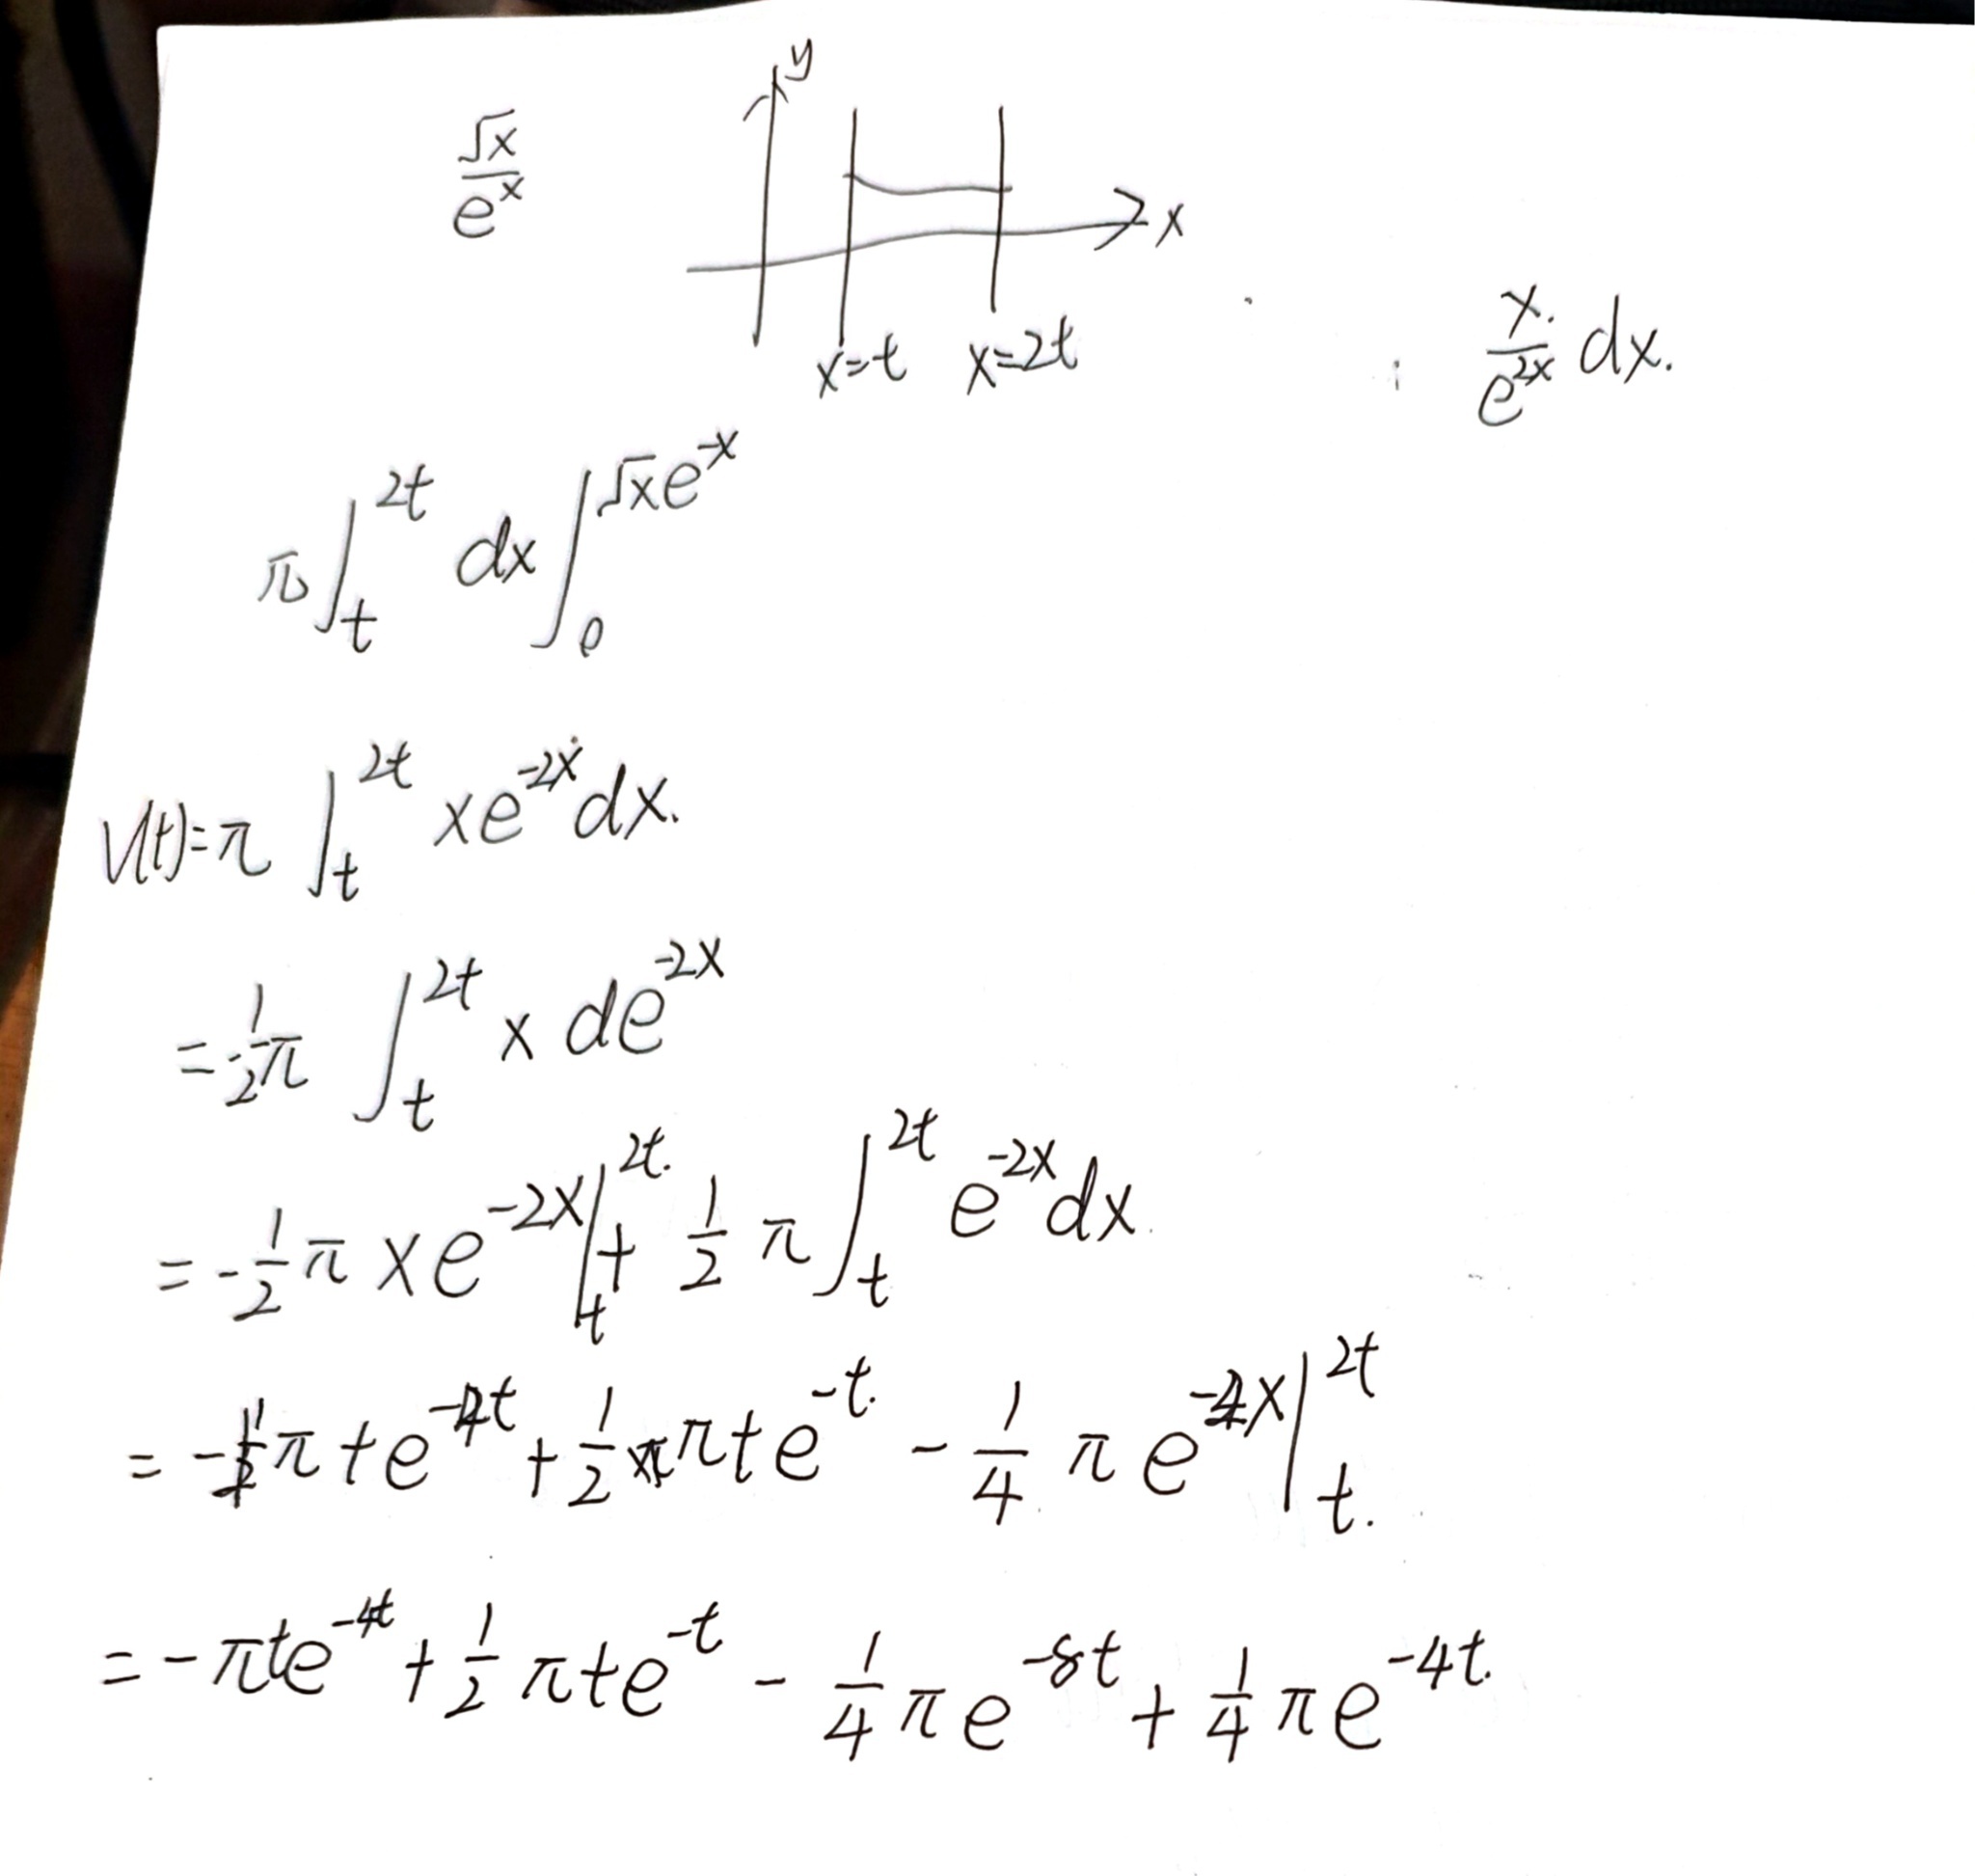 √x/e^x
y
x
x=t x=2t
x/e^{2x} dx.
π∫_t^{2t} dx ∫_0^{√x e^{-x}}
V(t)=π ∫_t^{2t} xe^{-2x}dx.
=-1/2π ∫_t^{2t} x de^{-2x}
=-1/2π xe^{-2x}|_t^{2t} + 1/2 π∫_t^{2t} e^{-2x}dx.
= - πte^{-4t} + 1/2 πte^{-t} - 1/4 πe^{-4x}|_t^{2t}.
= -πte^{-4t} + 1/2 πte^{-t} - 1/4 πe^{-8t} + 1/4 πe^{-4t}.